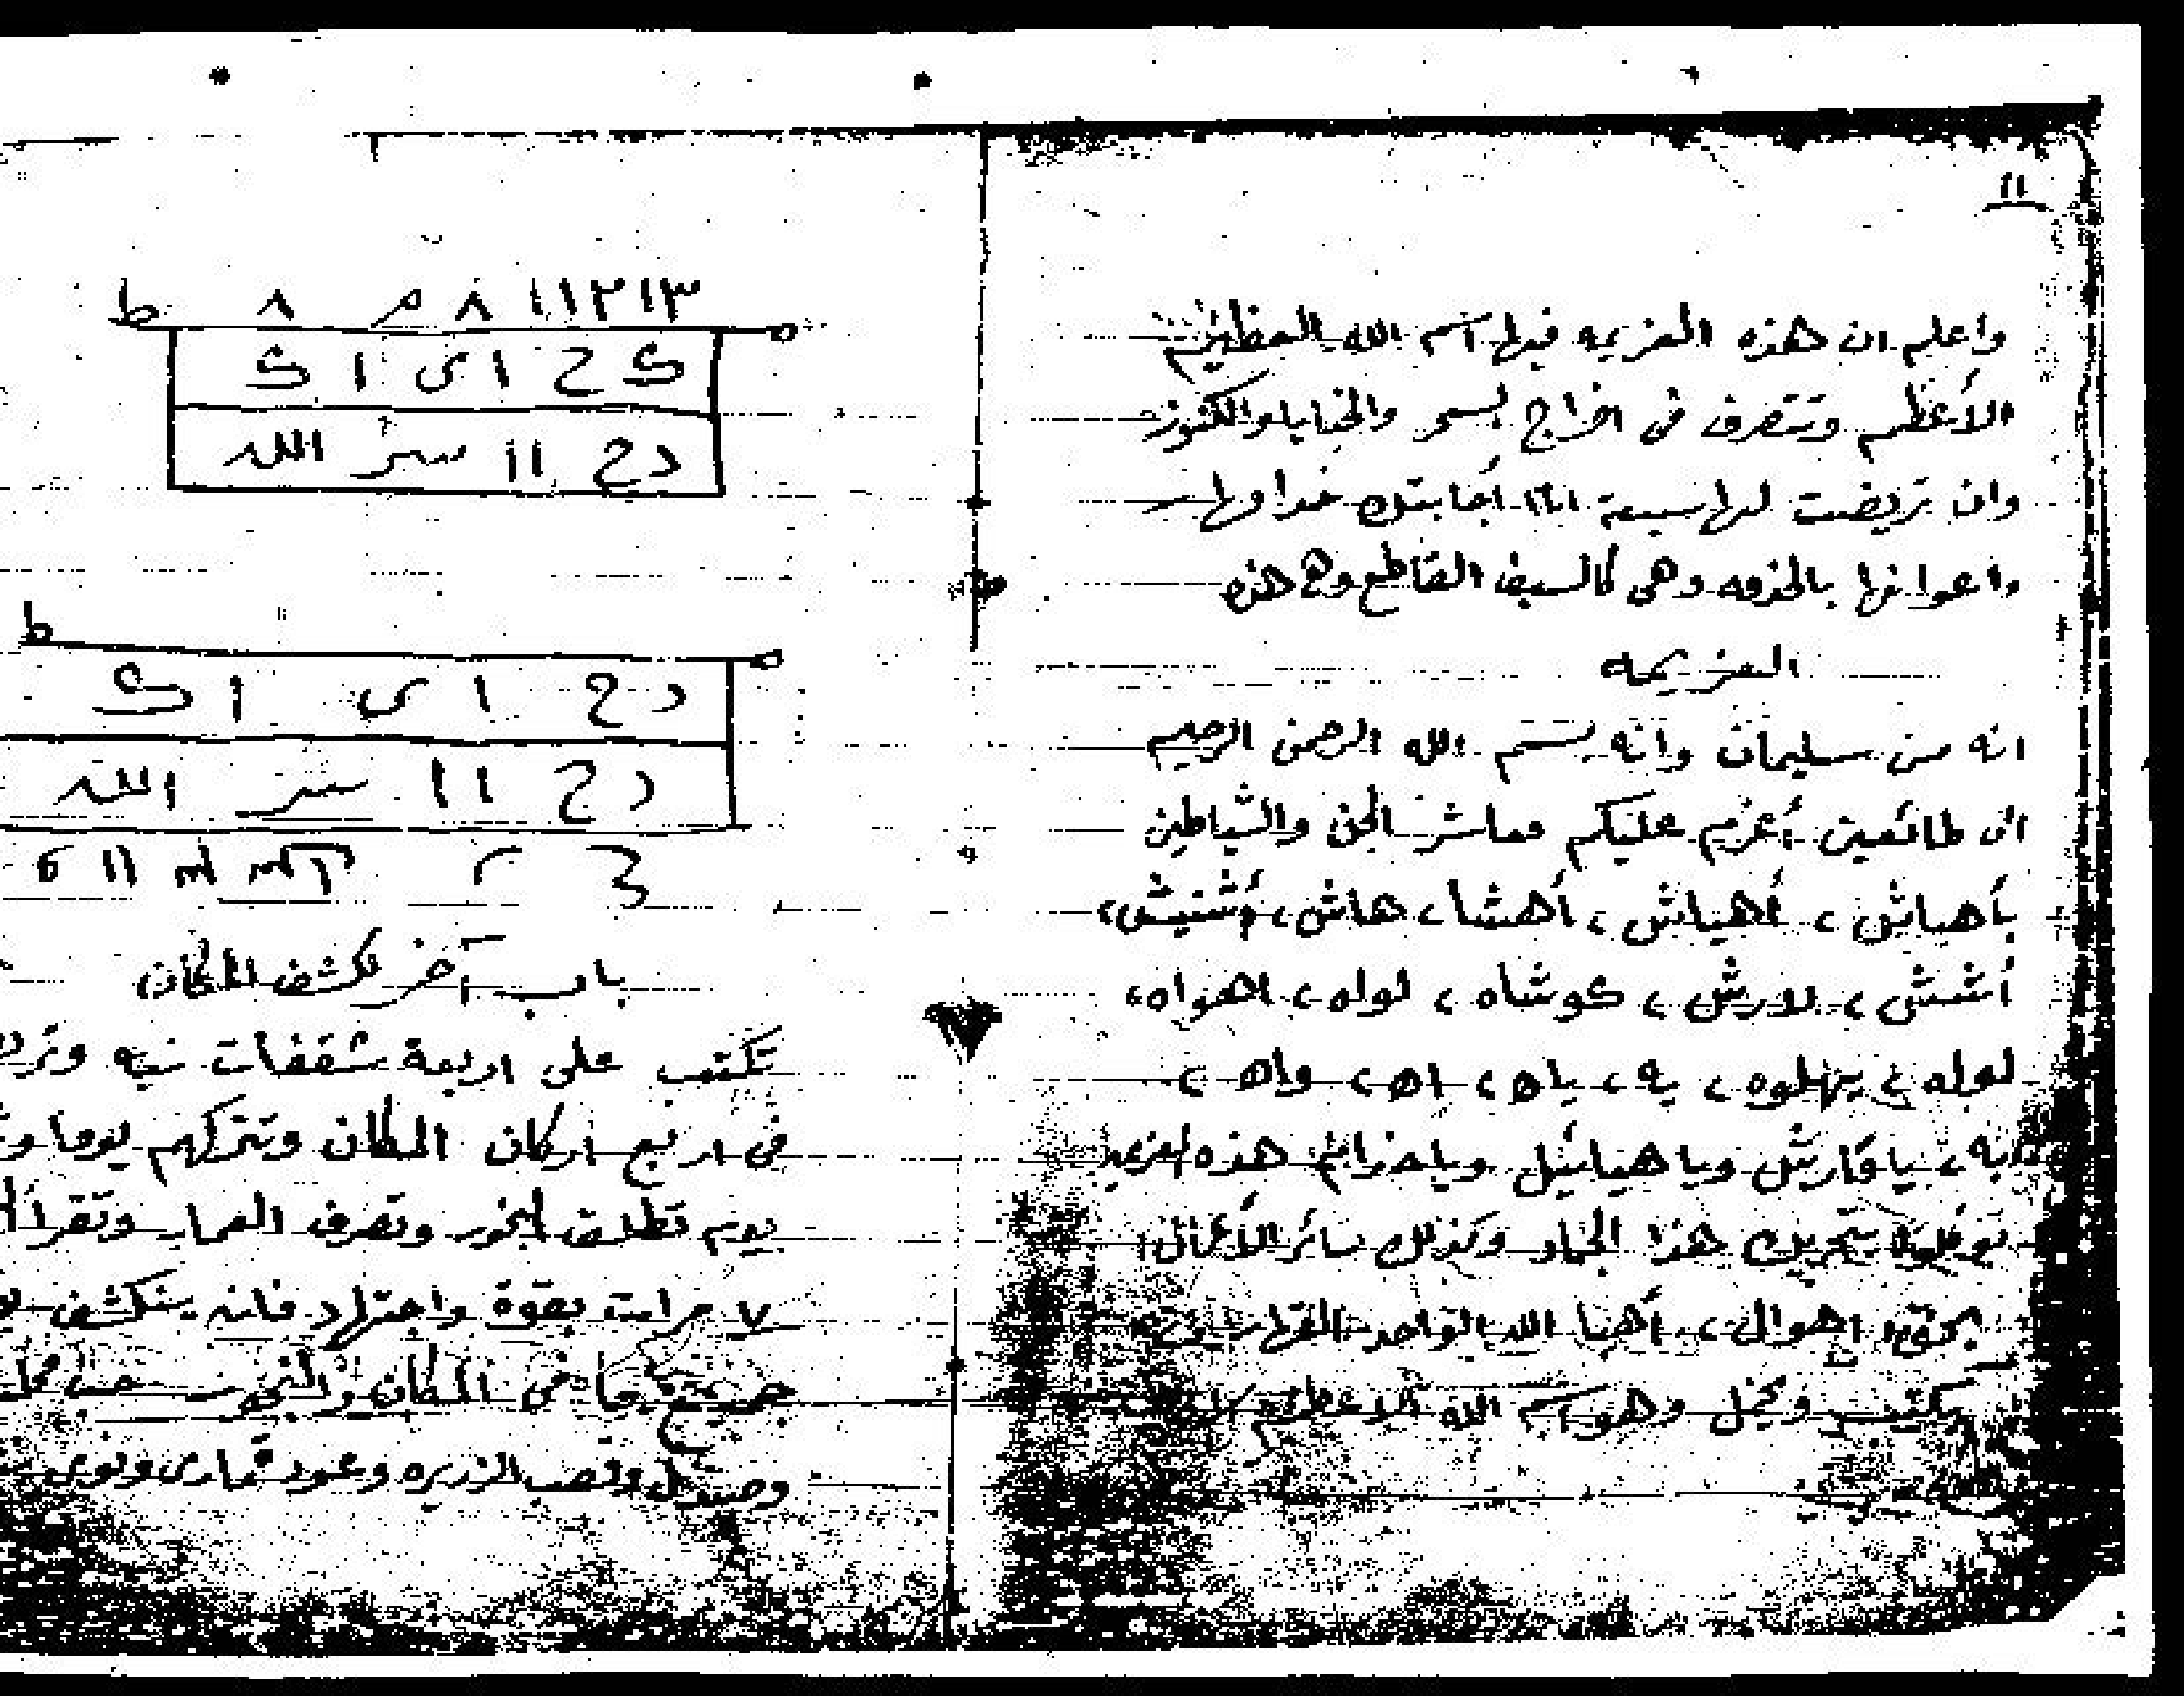 ١١
واعلم ان هذه العزيمه فيها اسم الله العظيم
الأعظم وتتصرف في اخراج السحر والخبايا والكنوز
وان تريضت لها سبعة ايام أجابتك خدامها
واعوانها بالخدمه وهي كالسيف القاطع وهي هذه
العزيمه
انه من سليمان وانه بسم الله الرحمن الرحيم
ان طائعين أعزم عليكم معاشر الجن والشياطين
بأهياش ، أهياش ، أهشا ، هاش ، أشنيش ،
أشش ، لارش ، كوشاه ، لواه ، اهواه ،
لوله ، يهلوه ، يه ، ياه ، اه ، واه ،
يا قاريش ويا هيائيل ويا خدام هذه العزيمه
توكلوا بتحريك هذا الجماد وكذلك سائر الأعمال
بحق اهوال ، أهيا الله الواحد القهار
يكتب ويحمل وهو اسم الله الاعظم
١١٢١٣ ٨ م ٨ ط
ك ح ا ى ا ك
د ح ١١ سر الله
ط
د ح ا ى ا ك
د ح ١١ سر الله
باب آخر لكشف المكان
تكتب على اربعة شقفات نيه
في اربع اركان المكان وتتركهم يوما
يوم تطلق البخور وتصرف العمار وتقرأ
٧ مرات بقوة واجتهاد فانه ينكشف
جميع ما في المكان والبخور حب
وصندل وقصب الذريره وعود قمارى ونوى